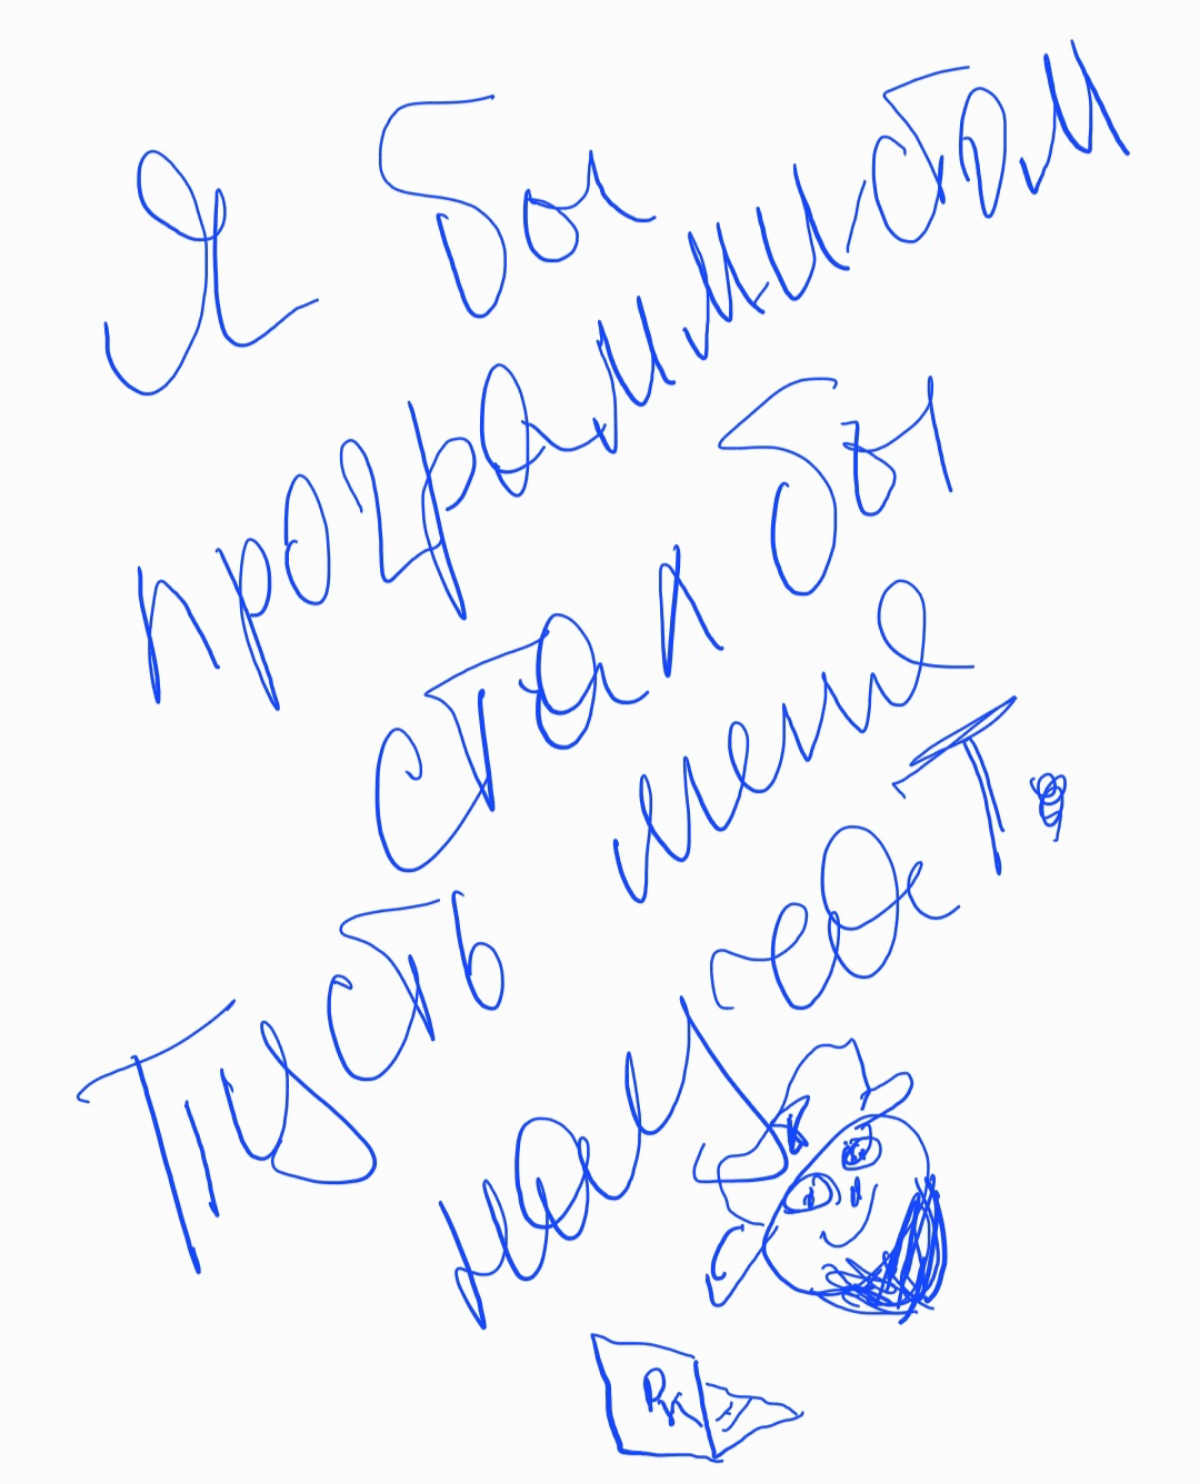 Я бы
программистом
стал бы
Пусть меня
научат.